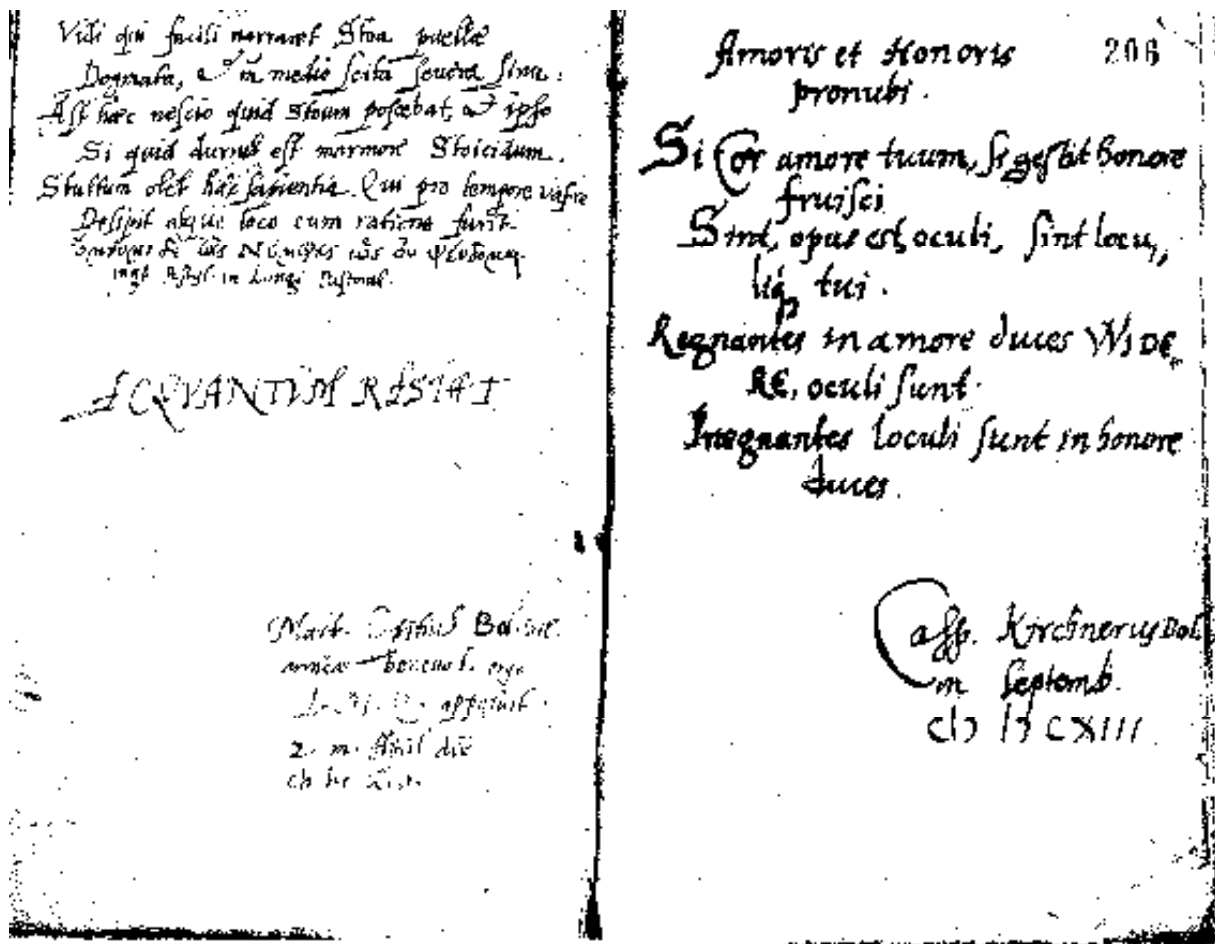 Vidi qui facili narraret Stoa puellæ
Dogmata, et in medio scita severa sinu:
Ast hæc nescio quid Stoum poscebat, et ipso
Si quid durius est marmore Stoicidum.
Stultum olet hæc sapientia. Qui pro tempore vafre
Desipit atque loco cum ratione furit.
in Longi Pastoral.
ECQVANTVM RESTAT
Mart. Opitius
amicæ benevol. ergo
apposuit
2. m. April die
206
Amoris et Honoris
pronubi.
Si Cor amore tuum, si gestit honore
fruisci
Sint, opus est, oculi, sint locu,
liq tui.
Regnantes in amore duces WIDE
RE, oculi sunt.
Inregnantes loculi sunt in honore
duces.
Casp. Kirchnerus Bol.
m Septemb.
cIɔ Iɔ CXIII